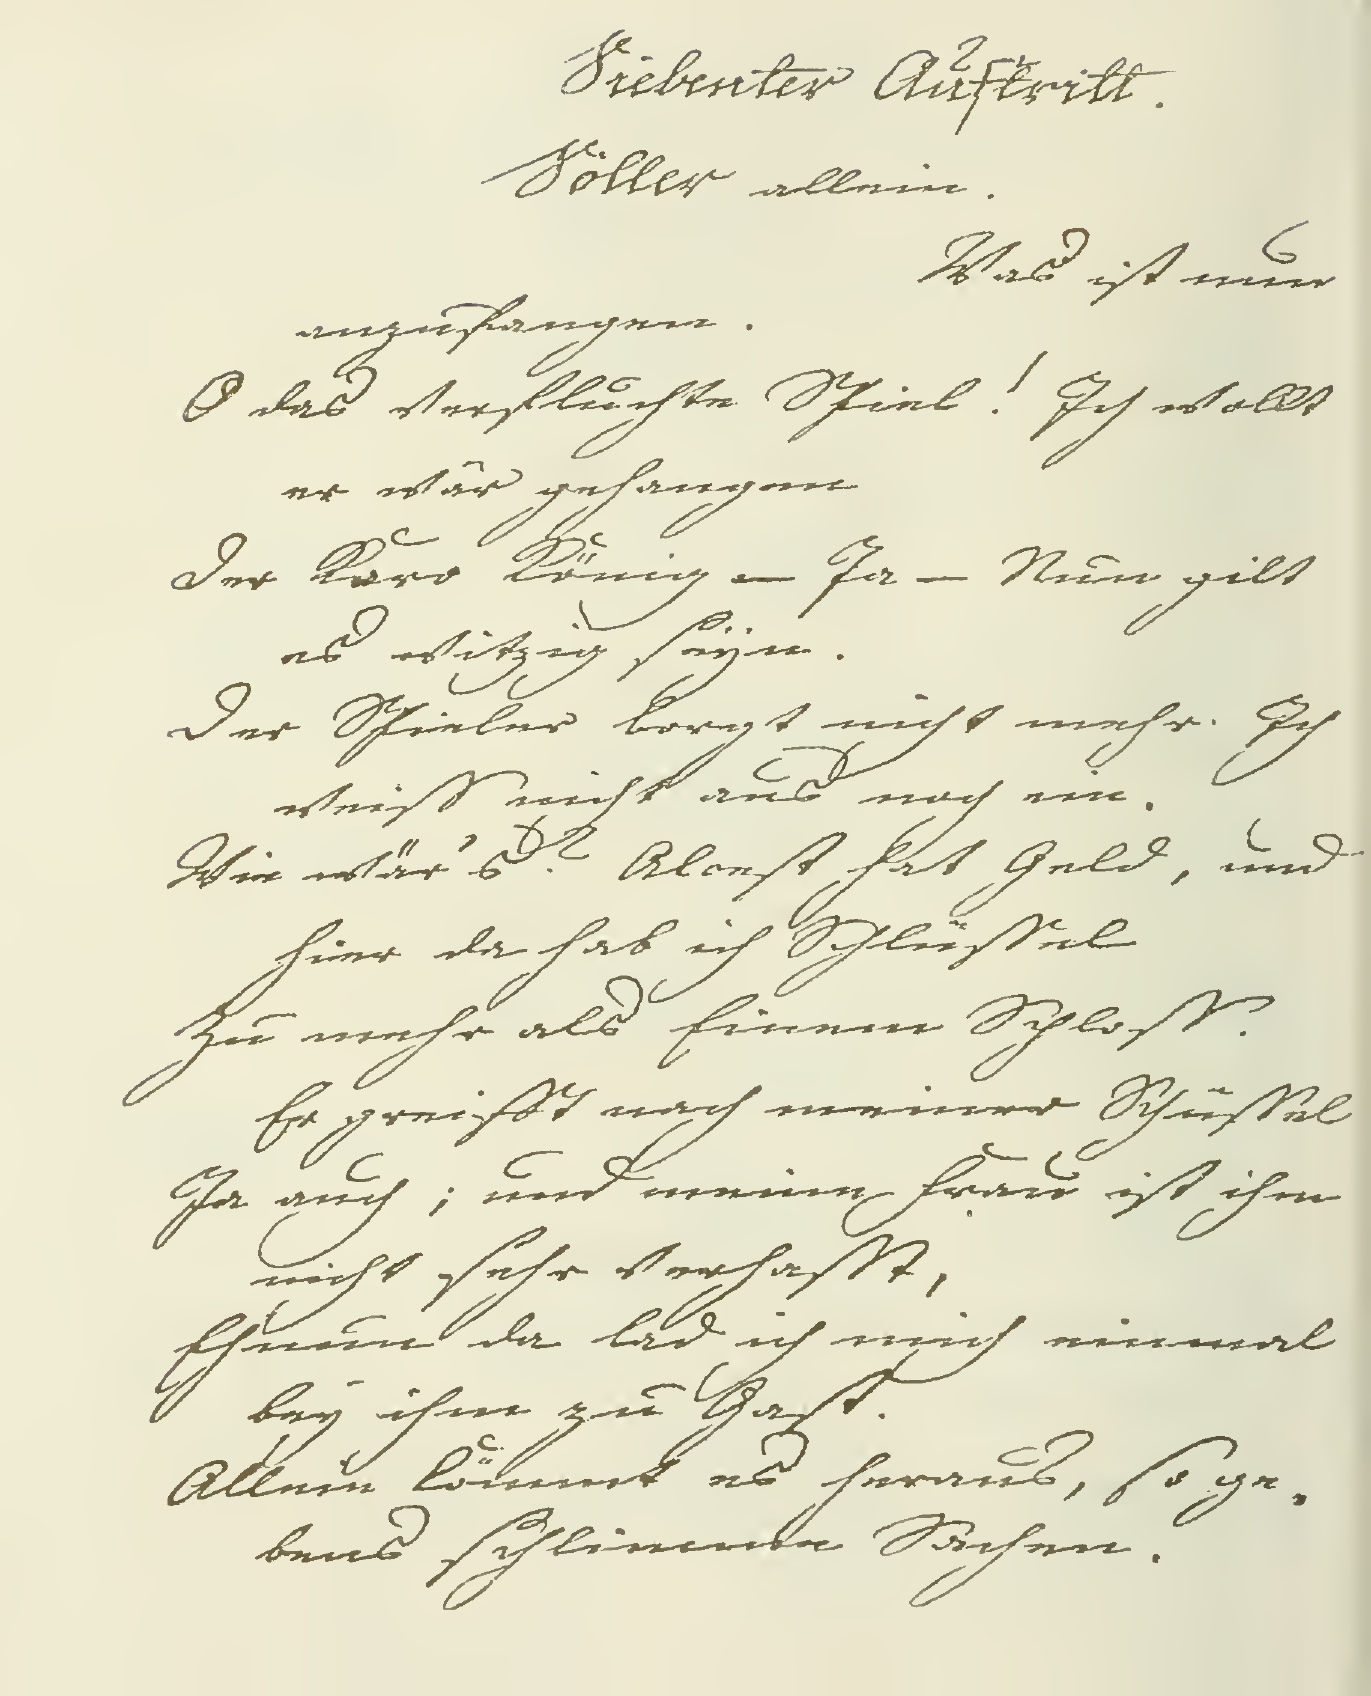 Siebenter Auftritt.
Söller allein.
Was ist nun
anzufangen.
O das verfluchte Spiel! Ich wollt
er wär gehangen
Der Caro König – Ja – Nun gilt
es witzig seyn.
Der Spieler borgt nicht mehr. Ich
weiss nicht aus noch ein.
Wie wär's? Alcest hat Geld, und
hier da hab ich Schlüssel
Zu mehr als Einem Schloss.
Er greifft nach meiner Schüssel
Ja auch; und meine Frau ist ihm
nicht sehr verhasst,
Eh nun da lad ich mich einmal
bey ihm zu Gast.
Allein kömmt es heraus, so ge-
bens schlimme Sachen.